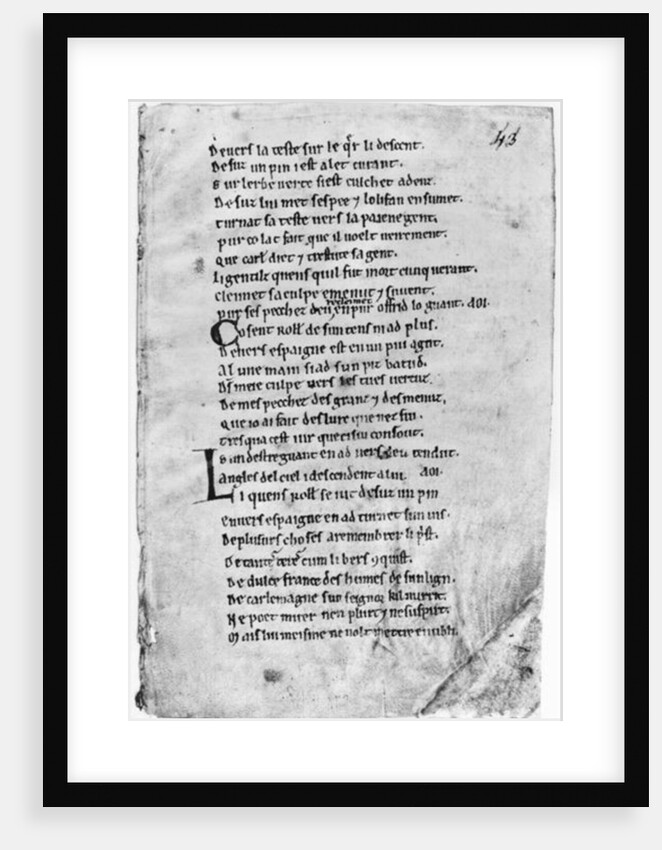 43
Deuers la teste sur le q̄r li descent.
Desuz un pin i est alet curant.
Sur lerbe uerte siest culchet adenz.
Desuz lui met sespee ⁊ lolifan ensumet.
turnat sa teste uers la paiene gent.
pur co lat fait que il uoelt ueirement.
que carł diet ⁊ trestute sa gent.
Li gentilz quens quil fut mort cunquerant.
cleimet sa culpe e menut ⁊ suuent.
pur ses pecchez deu recleimet en puroffrid lo guant. aoi.
Co sent Rołł de sun tens ni ad plus.
Deuers espaigne est en un pui agut.
Al une main si ad sun piz batud.
Ds̄ meie culpe uers les tues uertuz.
De mes pecchez des granz ⁊ des menuz.
que io ai fait des lure que nez fui.
tresqua cest iur que ci sui consout.
sun destre guant en ad uers deu tendut.
angles del ciel i descendent a lui. aoi.
Li quens Rołł se iut desuz un pin
enuers espaigne en ad turnet sun uis.
De plusurs choses a remembrer li p̄st.
De tantes teres cum li bers ꝯquist.
De dulce france des humes de sun lign.
De carlemagne sun seignor kil nurrit.
Ne poet muer nen plurt ⁊ ne suspirt.
Mais lui meisme ne uolt mettre en ubli.